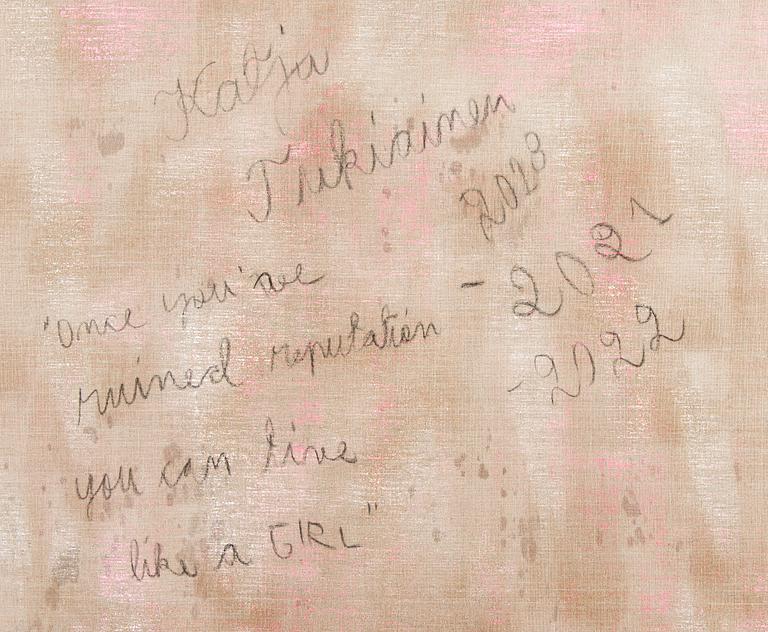 Katja
Tukiainen
2020
- 2021
- 2022
"Once you've
ruined reputation
you can live
like a GIRL"